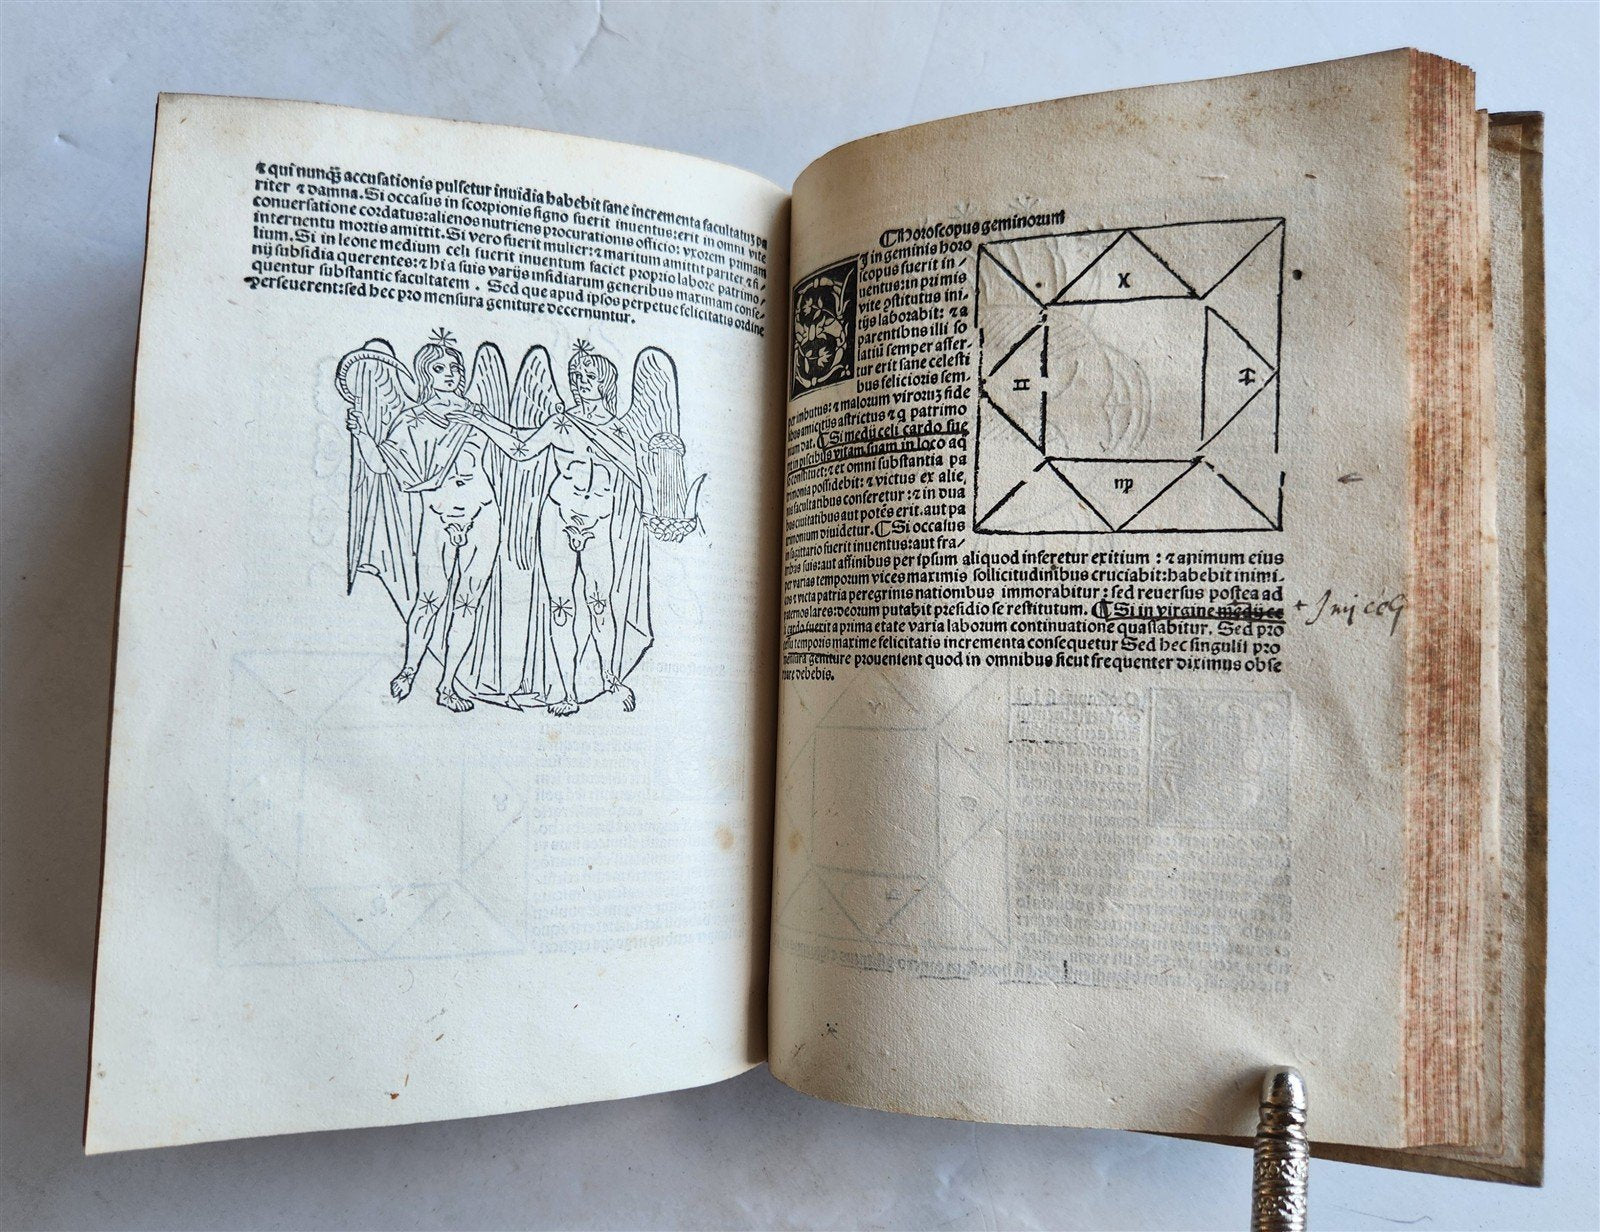 ⁊ qui nunq̃ accusationis pulsetur inuidia habebit sane incrementa facultatuʒ pa
riter ⁊ damna. Si occasus in scorpionis signo fuerit inuentus: erit in omni vite
conuersatione cordatus: alienos nutriens procurationis officio: vxorem primam
interuentu mortis amittit. Si vero fuerit mulier: ⁊ maritum amittit pariter ⁊ fi-
lium. Si in leone medium celi fuerit inuentum faciet proprio labore patrimo/
nij subsidia querentes: ⁊ hi a suis varijs insidiarum generibus maximam conse-
quentur substantie facultatem. Sed que apud ipsos perpetue felicitatis ordine
perseuerent: sed hec pro mensura geniture decernuntur.
Horoscopus geminorum
S
I in geminis horo
scopus fuerit in/
uentus: in primis
vite ꝯstitutus ini/
tijs laborabit: ⁊ a
parentibus illi so
latiũ semper affer-
tur erit sane celesti
bus felicioris sem-
per imbutus: ⁊ malorum viroruʒ fide
libus amicitijs astrictus ⁊ q patrimo
nium dat. Si medij celi cardo fue
rit in piscibus vitam suam in loco aq
so constituet: ⁊ ex omni substantia pa
trimonia possidebit: ⁊ victus ex alie,
nis facultatibus conferetur: ⁊ in dua
bus ciuitatibus aut potẽs erit. aut pa
trimonium diuidetur. Si occasus
in sagittario fuerit inuentus: aut fra/
tribus suis: aut affinibus per ipsum aliquod inferetur exitium: ⁊ animum eius
per varias temporum vices maximis sollicitudinibus cruciabit: habebit inimi-
cos ⁊ victa patria peregrinis nationibus immorabitur: sed reuersus postea ad
paternos lares: deorum putabit presidio se restitutum. Si in virgine medij ce
li cardo fuerit a prima etate varia laborum continuatione quassabitur. Sed pro
cessu temporis maxime felicitatis incrementa consequetur Sed hec singuli pro
mensura geniture prouenient quod in omnibus sicut frequenter diximus obse
ruare debebis.
♓
♊
♐
♍
+ Imi cœli